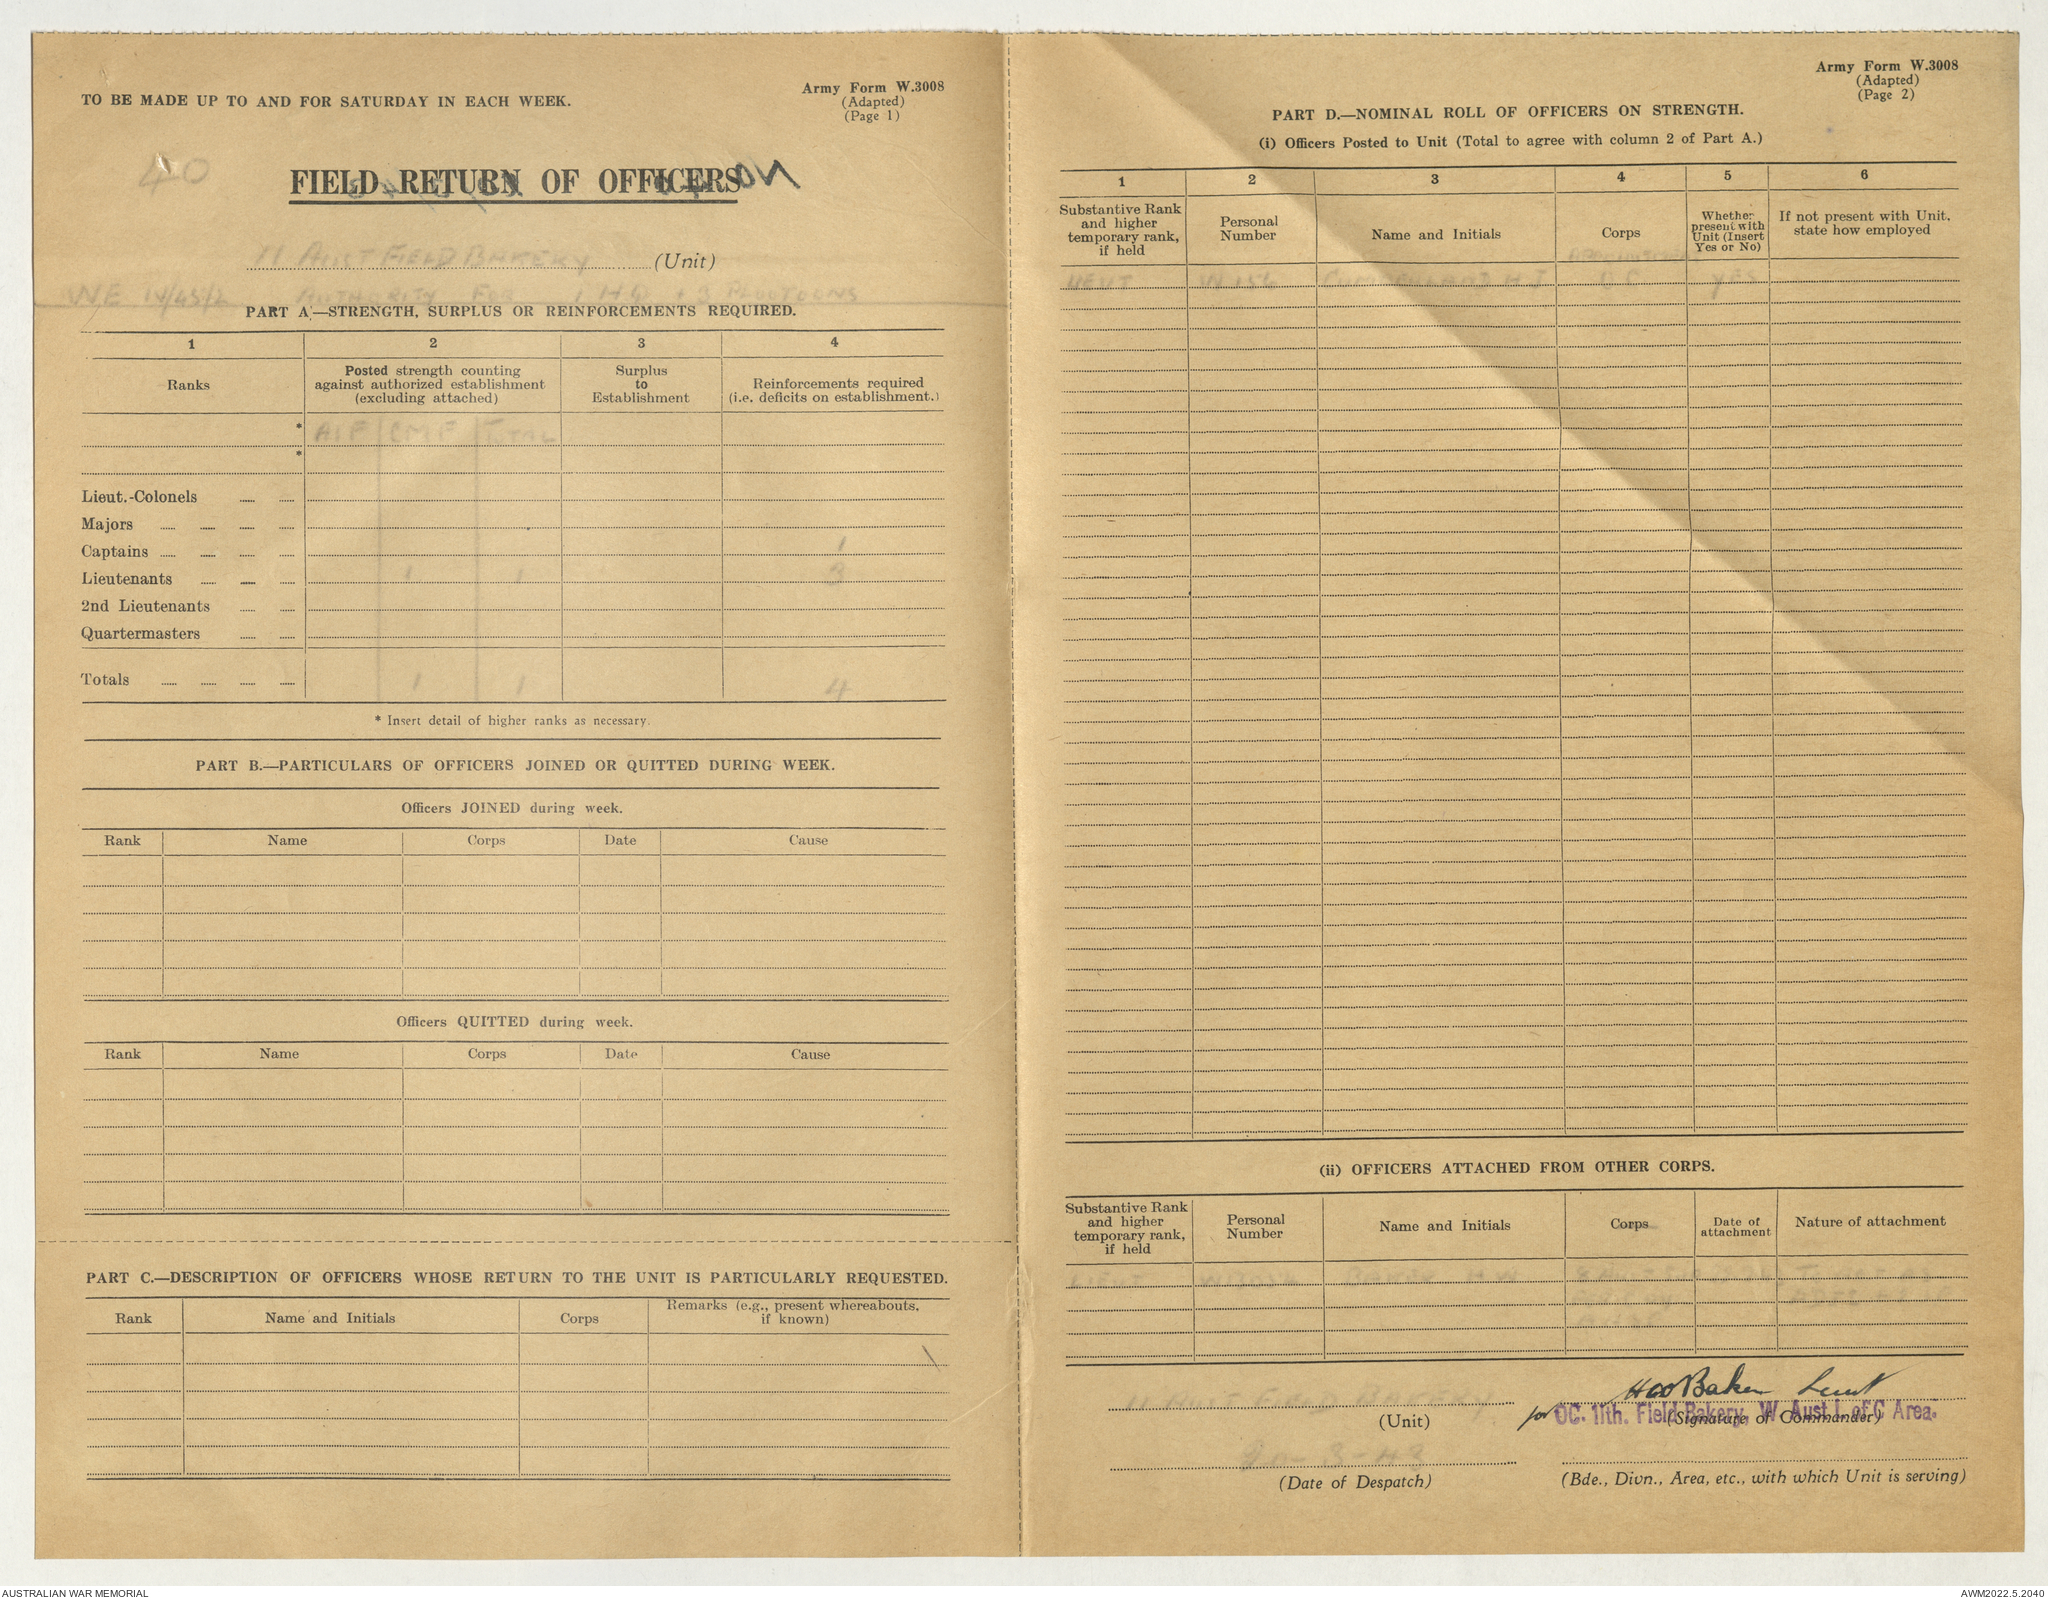 TO BE MADE UP TO AND FOR SATURDAY IN EACH WEEK.
Army Form W.3008
(Adapted)
(Page 1)
40
FIELD RETURN OF OFFICERS
11 AUST FIELD BAKERY (Unit)
AUTHORITY FOR 1 HQ + 3 PLOOTOONS
PART A.—STRENGTH, SURPLUS OR REINFORCEMENTS REQUIRED.
1 2 3 4
Ranks
Posted strength counting against authorized establishment (excluding attached)
Surplus to Establishment
Reinforcements required (i.e. deficits on establishment.)
* AIF CMF TOTAL
*
Lieut.-Colonels
Majors
Captains 1
Lieutenants 1 1 3
2nd Lieutenants
Quartermasters
Totals 1 1 4
* Insert detail of higher ranks as necessary.
PART B.—PARTICULARS OF OFFICERS JOINED OR QUITTED DURING WEEK.
Officers JOINED during week.
Rank Name Corps Date Cause
Officers QUITTED during week.
Rank Name Corps Date Cause
PART C.—DESCRIPTION OF OFFICERS WHOSE RETURN TO THE UNIT IS PARTICULARLY REQUESTED.
Rank Name and Initials Corps Remarks (e.g., present whereabouts, if known)
Army Form W.3008
(Adapted)
(Page 2)
PART D.—NOMINAL ROLL OF OFFICERS ON STRENGTH.
(i) Officers Posted to Unit (Total to agree with column 2 of Part A.)
1 2 3 4 5 6
Substantive Rank and higher temporary rank, if held
Personal Number
Name and Initials
Corps
Whether present with Unit (Insert Yes or No)
If not present with Unit, state how employed
LIEUT H J OC YES
(ii) OFFICERS ATTACHED FROM OTHER CORPS.
Substantive Rank and higher temporary rank, if held
Personal Number
Name and Initials
Corps
Date of attachment
Nature of attachment
LIEUT
11 AUST FIELD BAKERY
(Unit)
Baker Lieut
for OC. 11th. Field Bakery, W. Aust L of C Area.
(Signature of Commander)
20-3-43
(Date of Despatch)
(Bde., Divn., Area, etc., with which Unit is serving)
AUSTRALIAN WAR MEMORIAL
AWM2022.5.2040